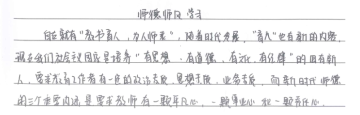 师德师风 学习
自古就有"教书育人,为人师表",随着时代发展,"育人"也有新的内涵,
现在我们社会议国应是培养"有思想、有道德、有文化、有纪律"的四有新
人,要求教育工作者有一定的政治素质,思想素质,业务素质,向新时代师德
的三个重要内涵是要求教师有一颗平凡心、一颗事业心和一颗责任心。